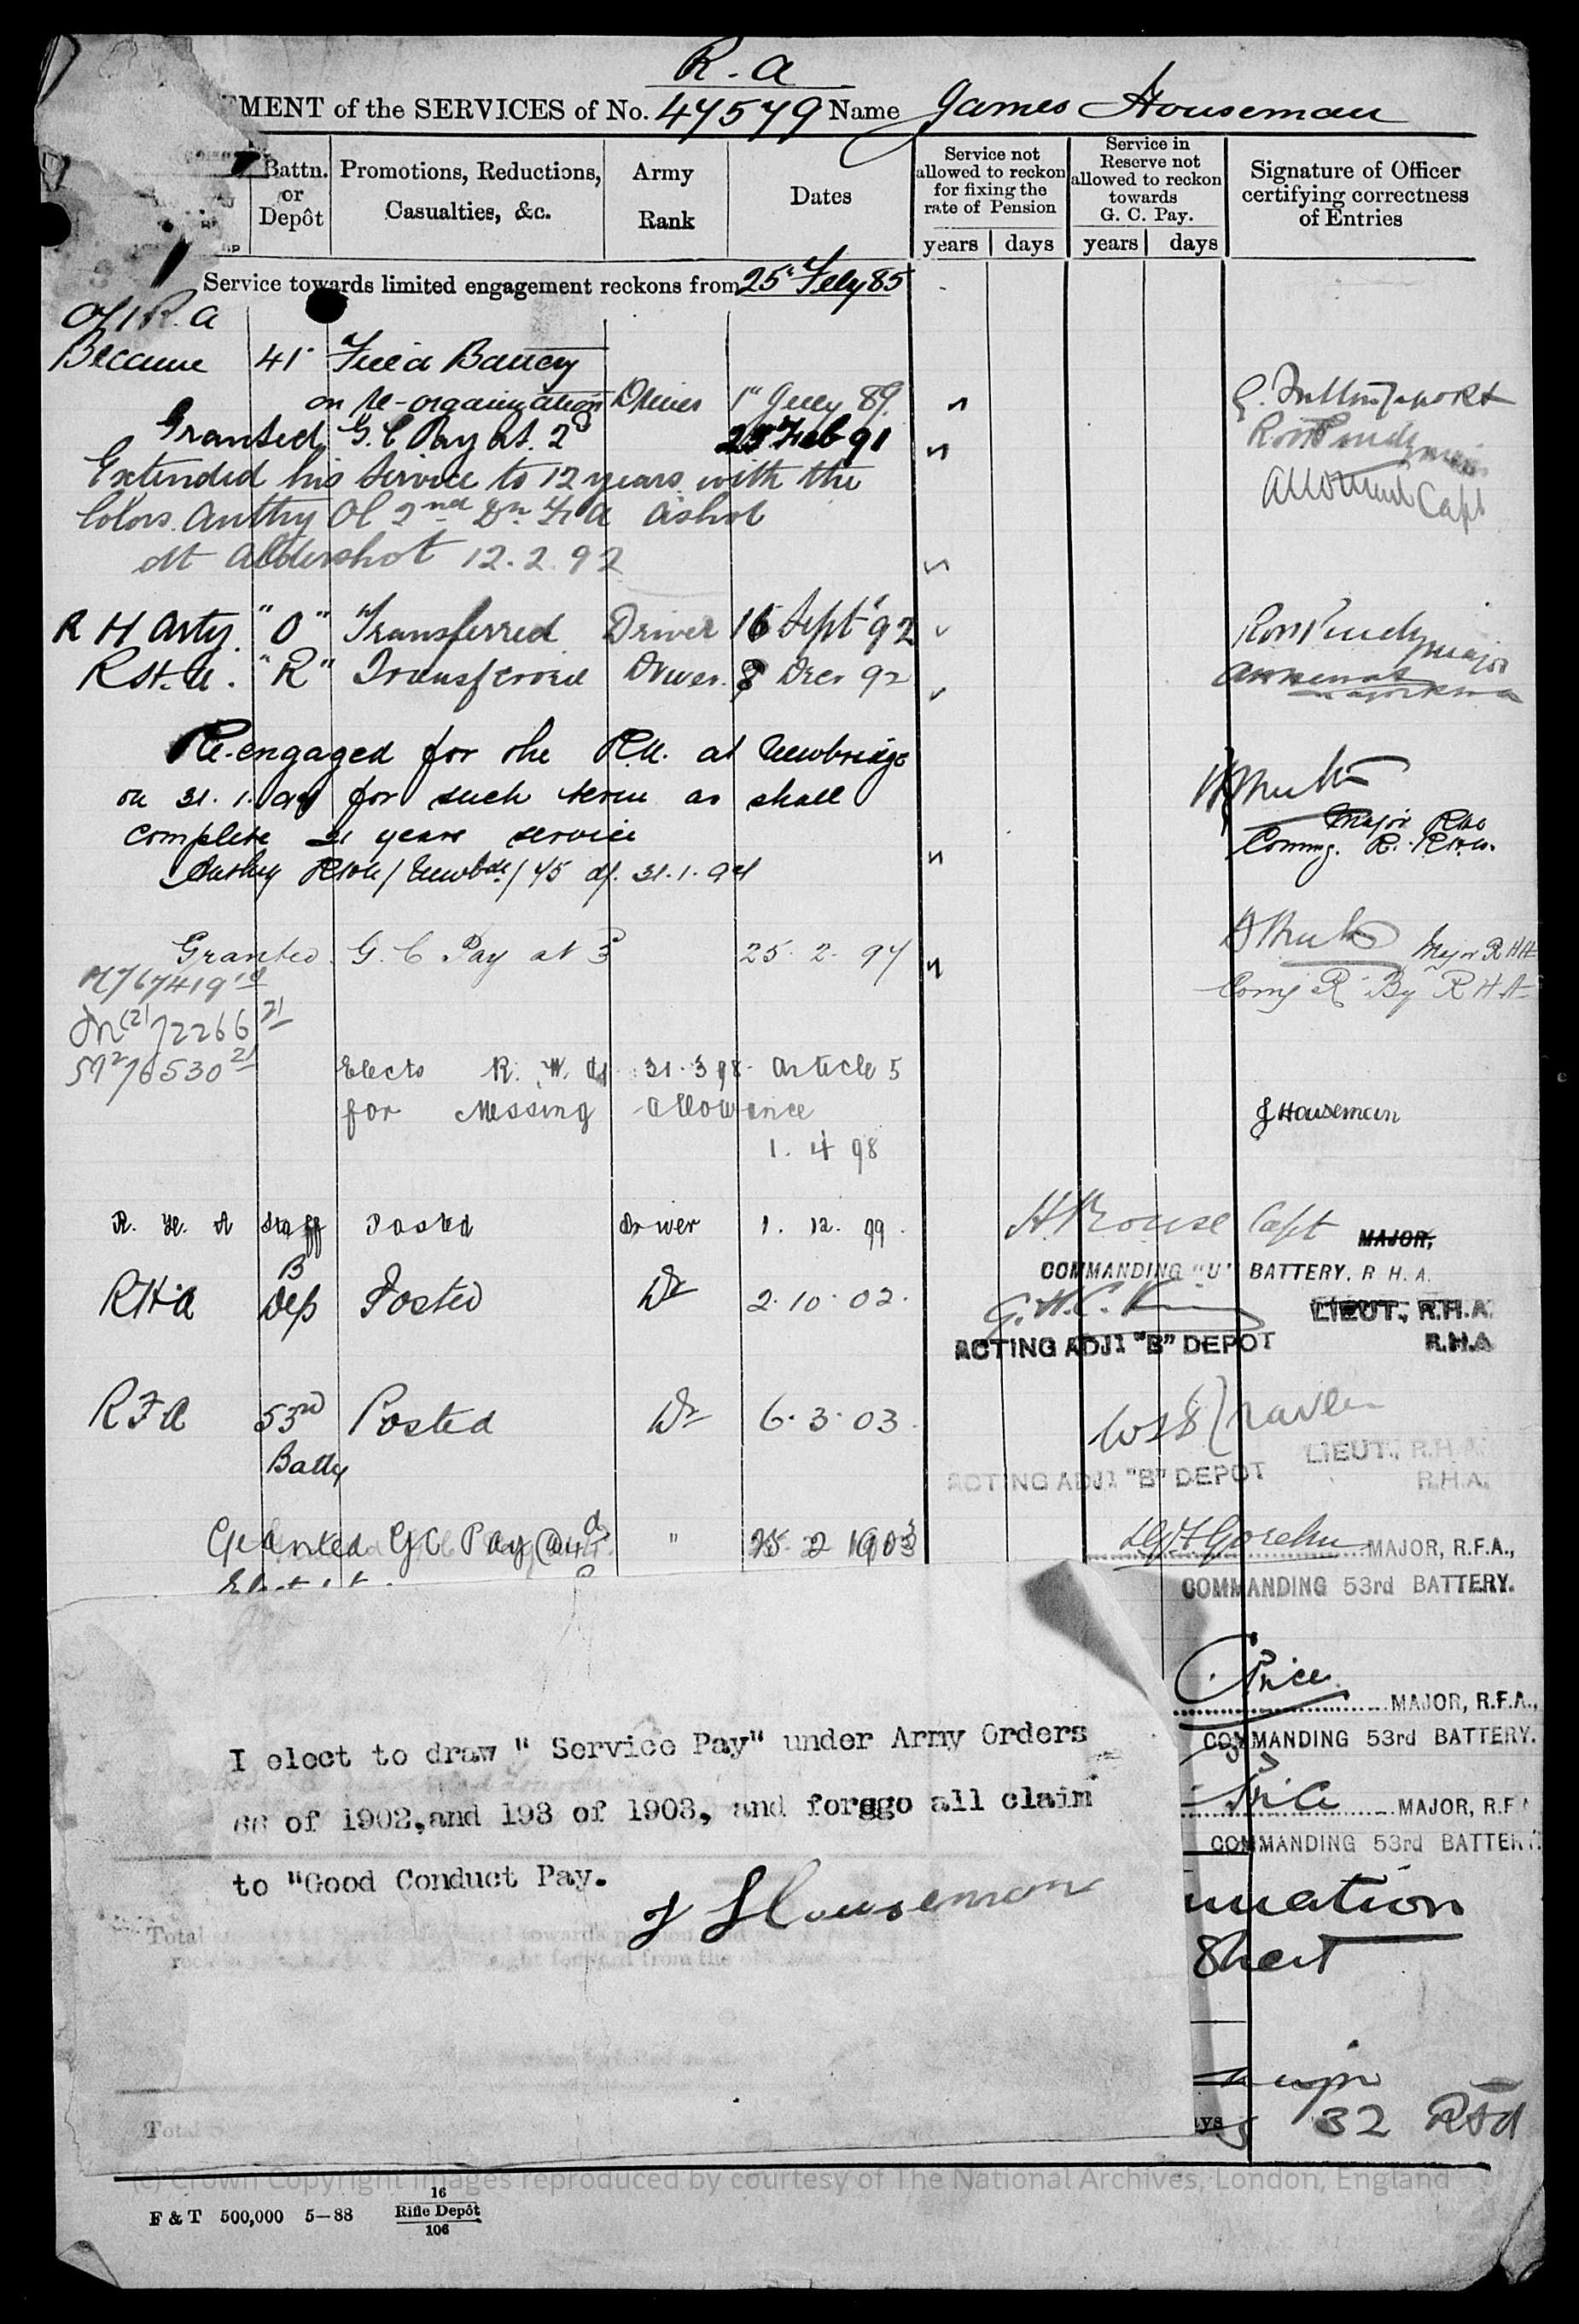 R. A
MENT of the SERVICES of No. 47579 Name James Houseman
Battn. or Depôt
Promotions, Reductions, Casualties, &c.
Army Rank
Dates
Service not allowed to reckon for fixing the rate of Pension
years days
Service in Reserve not allowed to reckon towards G. C. Pay.
years days
Signature of Officer certifying correctness of Entries
Service towards limited engagement reckons from 25 Feby 85
R. A
Became 41 Field Battery
on re-organization Driver 1st July 89
Granted G. C Pay at 2d 25 Feb 91
Extended his Service to 12 years with the
Colors. Authy 2nd Dn Ashot
Capt
at Aldershot 12.2.92
R H Arty. "O" Transferred Driver 16 Sept 92
Major
R.H.A. "R" Transferred Driver 8 Decr 92
Re-engaged for the R.A. at Newbridge
on 31.1.94 for such term as shall
complete 21 years service
Major RHA
Commg. R. R.H.A.
Authy 45 d/. 31.1.94
Granted G. C Pay at 3 25. 2. 97
Major R H A
Comg R By R H A
Elects R. W. 31.3.98. Article 5
for Messing Allowance
J Houseman
1. 4 98
R. H. A Staff Posted Driver 1. 12. 99.
Capt MAJOR,
COMMANDING "U" BATTERY, R H. A.
RHA B Dep Posted Dr 2.10.02.
LIEUT., R.H.A.
ACTING ADJT "B" DEPOT R.H.A
R F A 53rd Batty Posted Dr 6.3.03.
LIEUT., R.H.A.
ACTING ADJT "B" DEPOT R.H.A.
Granted G C Pay " 25 2 1903
MAJOR, R.F.A.,
COMMANDING 53rd BATTERY.
Price
MAJOR, R.F.A.,
COMMANDING 53rd BATTERY.
MAJOR, R.F.A
COMMANDING 53rd BATTERY.
I elect to draw " Service Pay" under Army Orders
66 of 1902,and 193 of 1903, and forego all claim
to "Good Conduct Pay.
J Houseman
nuation
Sheet
Total
Total
32
(c) Crown Copyright Images reproduced by courtesy of The National Archives, London, England
F & T 500,000 5—88 16 Rifle Depôt 106